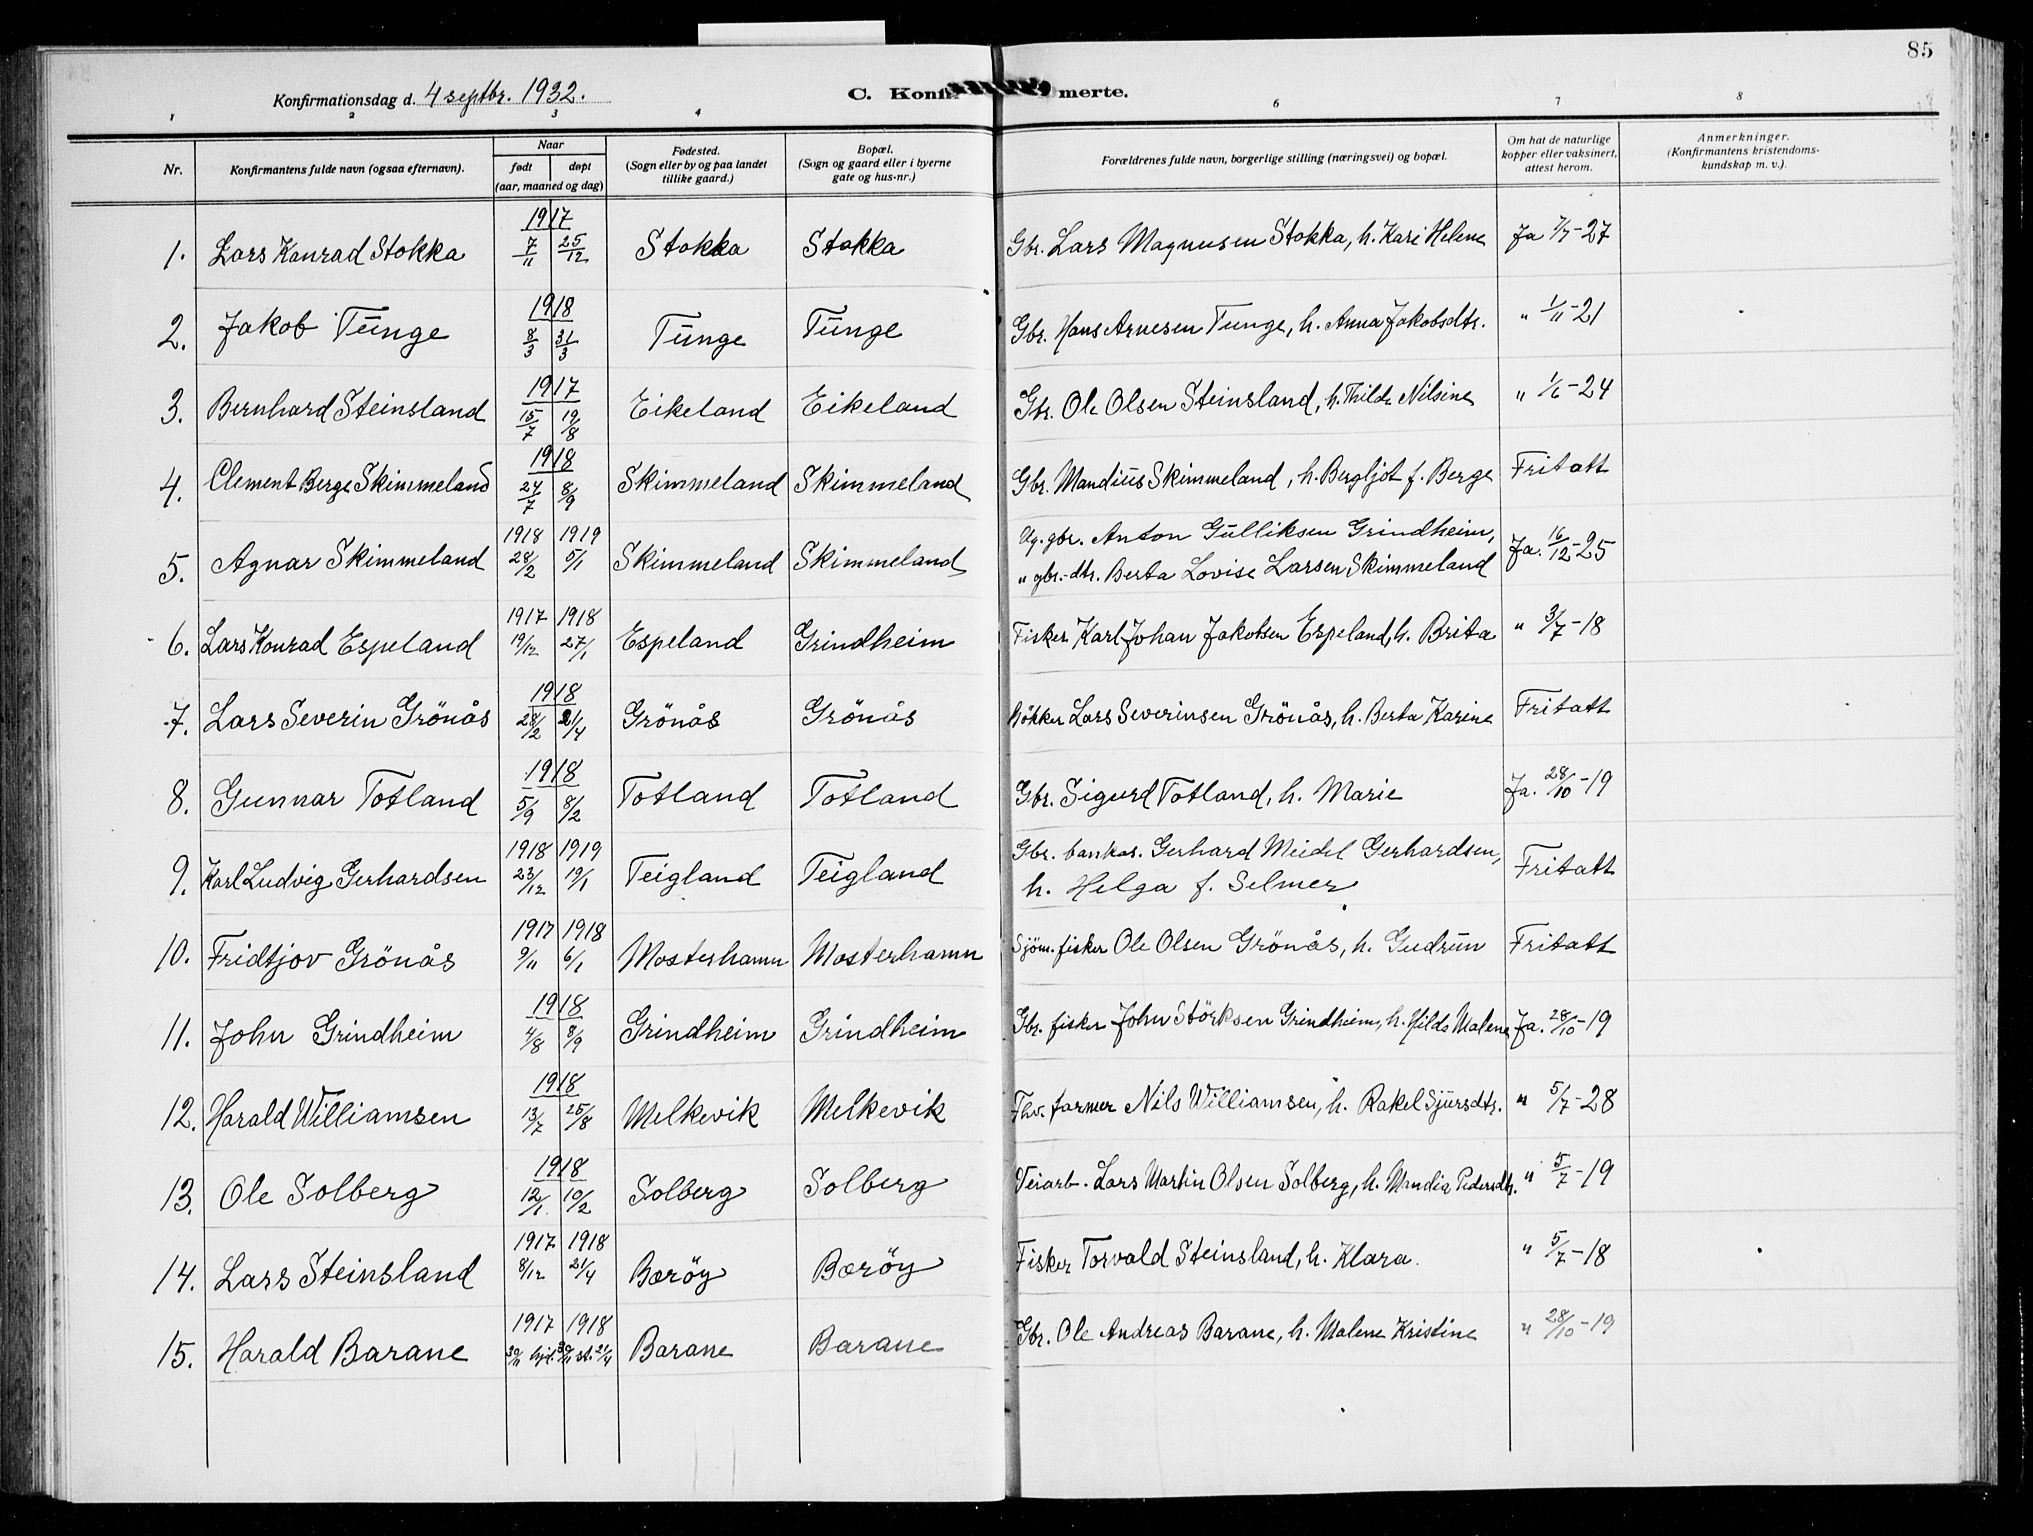 85
Konfirmationsdag d. 4 septbr. 1932. C. Konfi merte.
1 2 3 4 6 7 8
Nr. Konfirmantens fulde navn (ogsaa efternavn). Naar født døpt (aar, maaned og dag) Fødested. (Sogn eller by og paa landet tillike gaard.) Bopæl. (Sogn og gaard eller i byerne gate og hus-nr.) Forældrenes fulde navn, borgerlige stilling (næringsvei) og bopæl. Om hat de naturlige kopper eller vaksinert, attest herom. Anmerkninger. (Konfirmantens kristendoms-kundskap m. v.).
1917
1. Lars Konrad Stokka 7/11 25/12 Stokka Stokka Gbr. Lars Magnusen Stokka, h. Kari Helene Ja 7/7-27
1918
2. Jakob Tunge 8/3 31/3 Tunge Tunge Gbr. Hans Arnesen Tunge, h. Anna Jakobsdtr. " 1/11-21
1917
3. Bernhard Steinsland 15/7 19/8 Eikeland Eikeland Gbr. Ole Olsen Steinsland, h. Thilda Nilsine " 1/6-24
1918
4. Clement Berge Skimmeland 24/7 8/9 Skimmeland Skimmeland Gbr. Mandius Skimmeland, h. Bergljot f. Berge Fritatt
1918 1919 Ug. gbr. Anton Gulliksen Grindheim,
5. Agnar Skimmeland 28/2 5/1 Skimmeland Skimmeland " gbr.-dtr. Berta Lovise Larsen Skimmeland Ja. 16/12-25
1917 1918
6. Lars Konrad Espeland 19/12 27/1 Espeland Grindheim Fisker Karl Johan Jakobsen Espeland, h. Brita " 3/7-18
1918
7. Lars Severin Grönås 28/2 21/4 Grönås Grönås Bökker Lars Severinsen Grönås, h. Berta Karine Fritatt
1918
8. Gunnar Totland 5/9 8/2 Totland Totland Gbr. Sigurd Totland, h. Marie Ja. 28/10-19
1918 1919 Gbr. bankas. Gerhard Meidel Gerhardsen,
9. Karl Ludvig Gerhardsen 23/12 19/1 Teigland Teigland h. Helga f. Selmer Fritatt
1917 1918
10. Fridtjov Grönås 9/11 6/1 Mosterhamn Mosterhamn Sjöm. fisker Ole Olsen Grönås, h. Gudrun Fritatt
1918
11. John Grindheim 4/8 8/9 Grindheim Grindheim Gbr. fisker John Störksen Grindheim, h. Hilda Malene Ja. 28/10-19
1918
12. Harald Williamsen 13/7 25/8 Melkevik Melkevik Fhv. farmer Nils Williamsen, h. Rakel Sjursdtr. " 5/7-28
1918
13. Ole Solberg 12/1 10/2 Solberg Solberg Veiarb. Lars Martin Olsen Solberg, h. Mandia Pedersdtr. " 5/7-19
1917 1918
14. Lars Steinsland 8/12 21/4 Bæröy Bæröy Fisker Torvald Steinsland, h. Klara. " 5/7-18
1917 1918
15. Harald Barane 30/11 hjd. 30/11 st. 21/4 Barane Barane Gbr. Ole Andreas Barane, h. Malene Kristine " 28/10-19